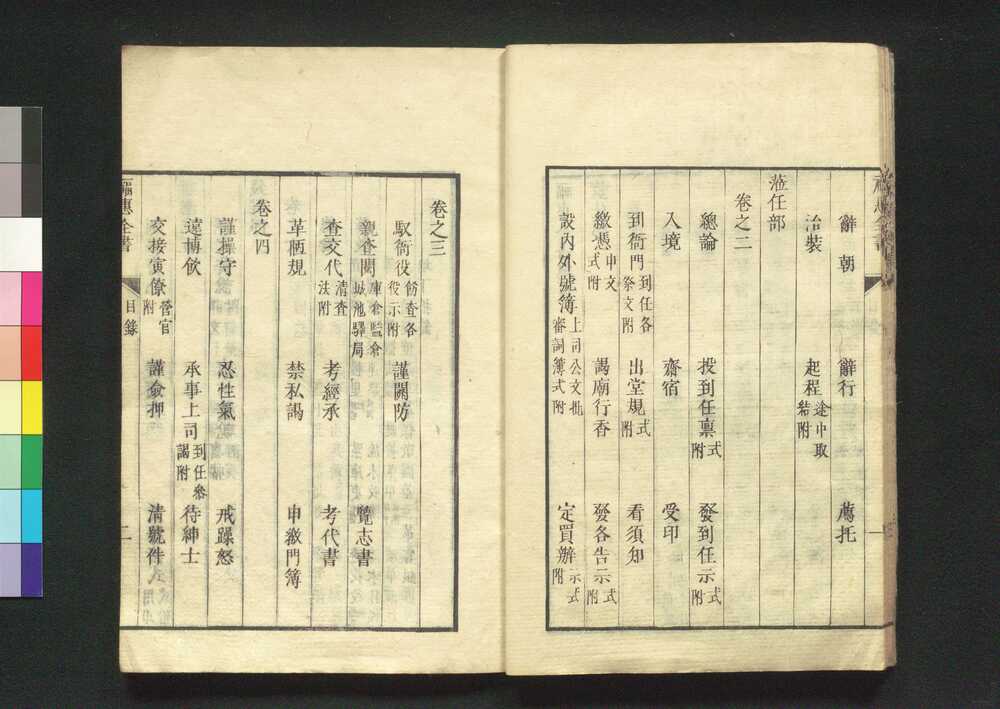 辭朝 辭行 薦托
治裝 起程途中取結附
蒞任部
卷之二
總論 投到任稟式附 發到任示式附
入境 齋宿 受印
到衙門到任各祭文附 出堂規式附 看須知
繳憑申文式附 謁廟行香 發各告示式附
設内外號簿上司公文批審詞簿式附 定買辦示式附
卷之三
馭衙役飭查各役示附 謹關防
親查閱庫倉監倉城池驛局 覽志書
查交代清查法附 考經承 考代書
革陋規 禁私謁 申繳門簿
卷之四
謹操守 忍性氣 戒躁怒
遠博飲 承事上司到任參謁附 待紳士
交接寅僚營官附 謹僉押 清號件
福惠全書 目錄 二